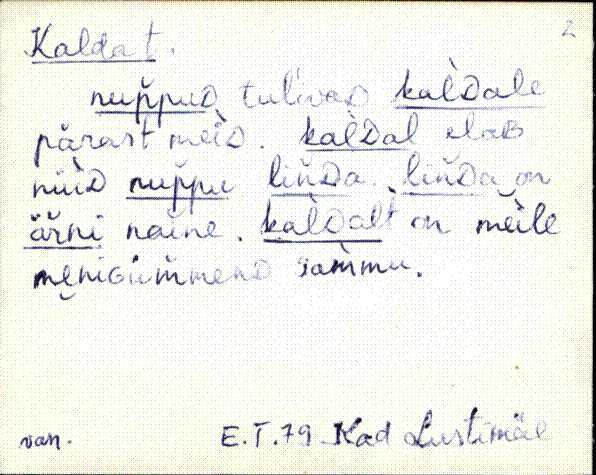 Kaldat. 2
nup̆pud tul'ivaD kal̀Dale
pärast meìD. kal̀Dal elaB
nüìD nup̆pu lin̆Da. lin̆Da on
är̆ni naĭne. kàl̀Dalt on mèìle
mẹnigüm̆menD sam̀mu.
van. E.T.79 Kad Lustimäe